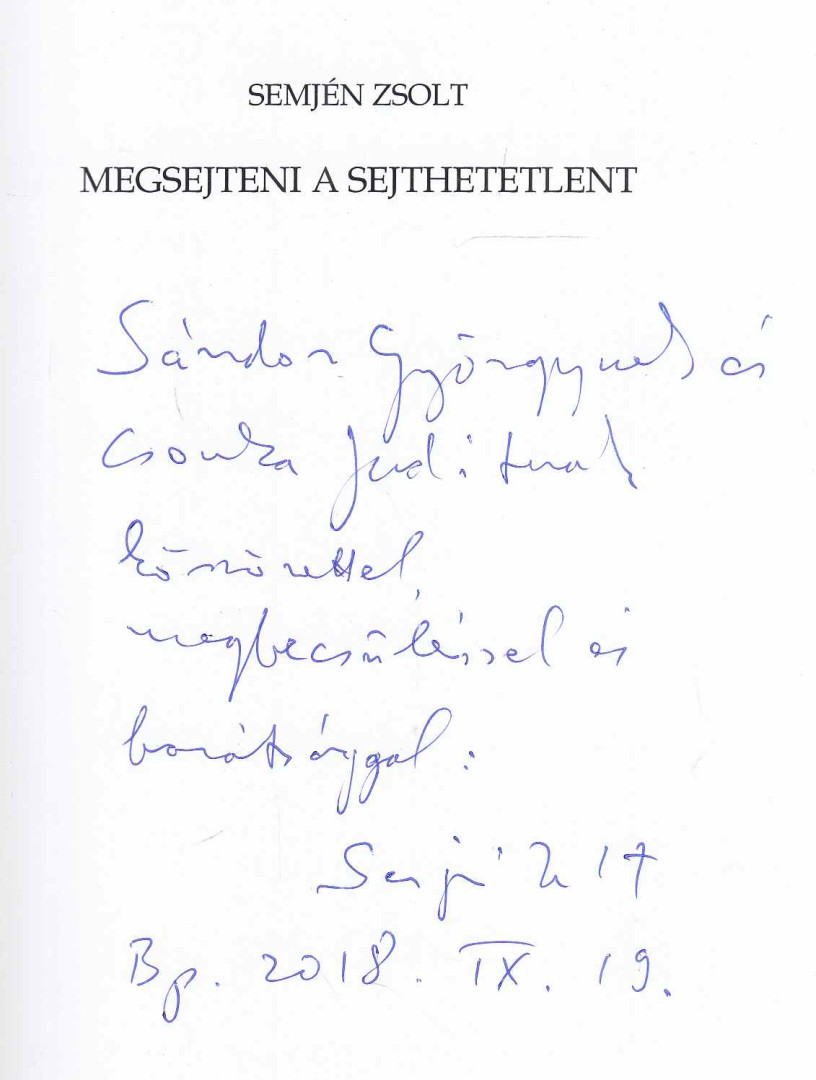 SEMJÉN ZSOLT
MEGSEJTENI A SEJTHETETLENT
Sándor Györgynek és
Csonka Juditnak
köszönettel,
megbecsüléssel és
barátsággal:
Semjén Zsolt
Bp. 2018. IX. 19.